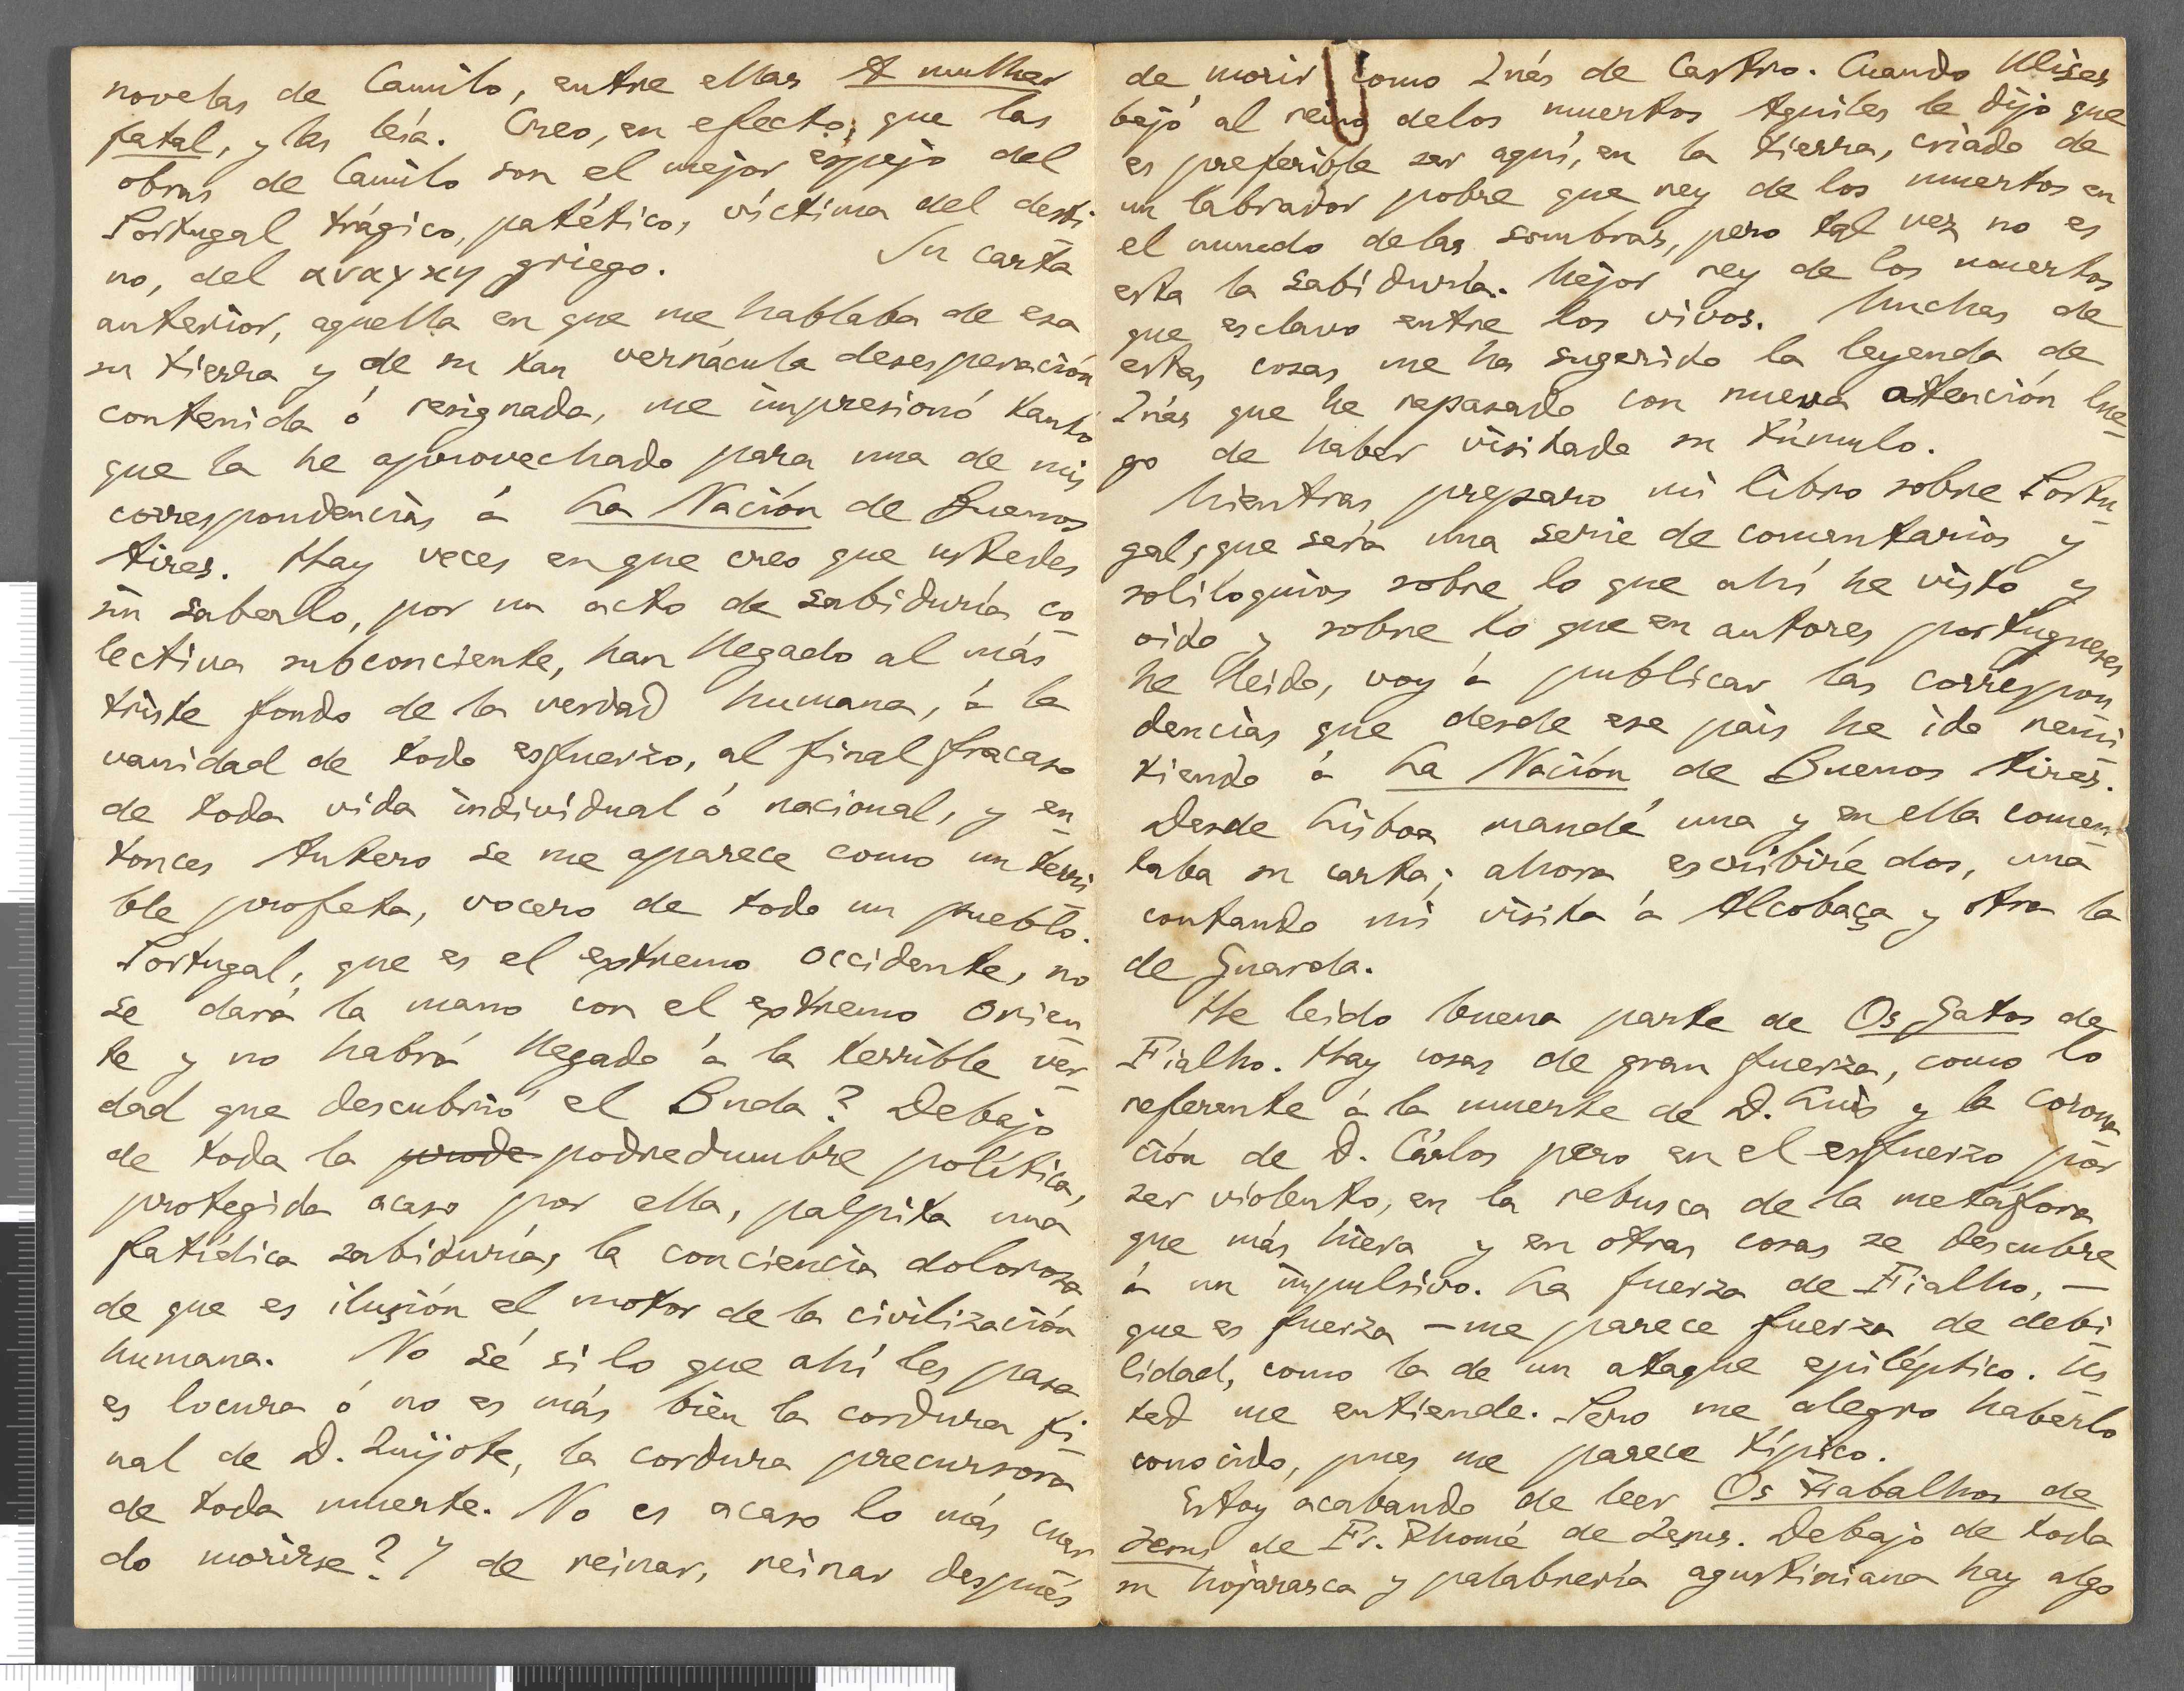 novelas de Camilo, entre ellas A mulher
fatal, y las leía. Creo, en efecto, que las
obras de Camilo son el mejor espejo del
Portugal trágico, patético, víctima del desti
no, del αναγχη griego. Su carta
anterior, aquella en que me hablaba de esa
su tierra y de su tan vernácula desesperación
contenida ó resignada, me impresionó tanto
que la he aprovechado para una de mis
correspondencias á La Nación de Buenos
Aires. Hay veces en que creo que ustedes
sin saberlo, por un acto de sabiduría co
lectiva subconciente, han llegado al más
triste fondo de la verdad humana, á la
vanidad de todo esfuerzo, al final fracaso
de toda vida individual ó nacional, y en
tonces Antero se me aparece como un terri
ble profeta, vocero de todo un pueblo.
Portugal, que es el extremo occidente, no
se dará la mano con el extremo orien
te y no habrá llegado á la terrible ver
dad que descubrió el Buda? Debajo
de toda la prode podredumbre política,
protegida acaso por ella, palpita una
fatídica sabiduría, la conciencia dolorosa
de que es ilusión el motor de la civilización
humana. No sé si lo que ahí les pasa
es locura ó no es más bien la cordura fi
nal de D. Quijote, la cordura precursora
de toda muerte. No es acaso lo más cuer
do morirse? Y de reinar, reinar después
de morir como Inés de Castro. Cuando Ulises
bajó al reino delos muertos Aquiles le dijo que
es preferible ser aquí, en la tierra, criado de
un labrador pobre que rey de los muertos en
el mundo delas sombras, pero tal vez no es
esta la sabiduría. Mejor rey de los muertos
que esclavo entre los vivos. Muchas de
estas cosas me ha sugerido la leyenda de
Inés que he repasado con nueva atención lue
go de haber visitado su túmulo.
Mientras preparo mi libro sobre Portu
gal, que será una serie de comentarios y
soliloquios sobre lo que ahí he visto y
oido y sobre lo que en autores portugueses
he leido, voy á publicar las correspon
dencias que desde ese país he ido remi
tiendo á La Nación de Buenos Aires.
Desde Lisboa mandé una y en ella comen
taba su carta; ahora escribiré dos, una
contando mi visita á Alcobaça y otra la
de Guarda.
He leido buena parte de Os Gatos de
Fialho. Hay cosas de gran fuerza, como lo
referente á la muerte de D. Luis y la corona
ción de D. Cárlos pero en el esfuerzo por
ser violento, en la rebusca de la metáfora
que más hiera y en otras cosas se descubre
á un impulsivo. La fuerza de Fialho, —
que es fuerza — me parece fuerza de debi
lidad, como la de un ataque epiléptico. Us
ted me entiende. Pero me alegro haberlo
conocido, pues me parece típico.
Estoy acabando de leer Os trabalhos de
Jesus de Fr. Thomé de Jesus. Debajo de toda
su hojarasca y palabrería agustiniana hay algo